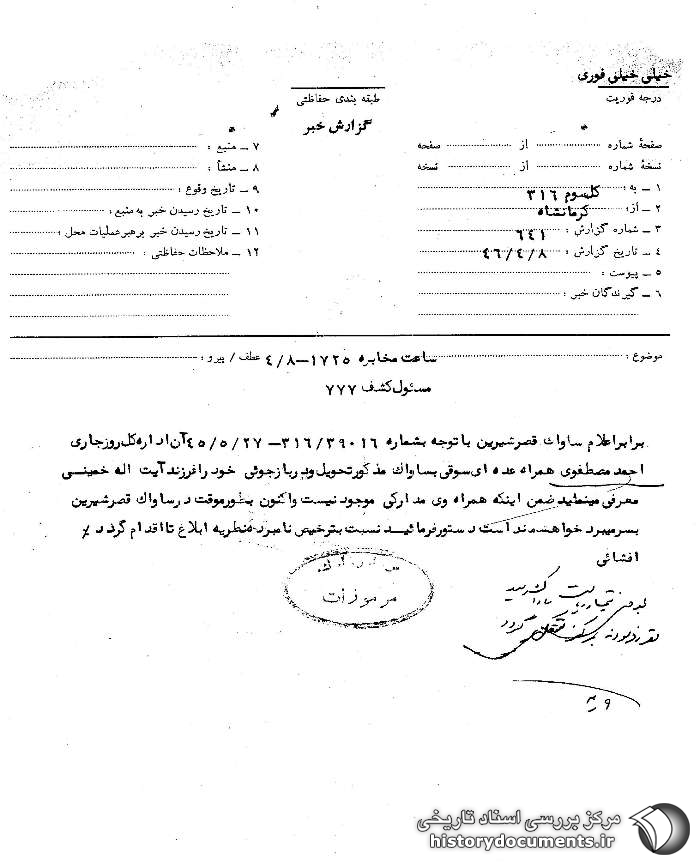 خیلی خیلی فوری
درجه فوریت
طبقه بندی حفاظتی
گزارش خبر
صفحهٔ شماره از صفحه
نسخهٔ شماره از نسخه
۱ ـ به: کلسوم ۳۱۶
۲ ـ از: کرمانشاه
۳ ـ شماره گزارش: ۶۴۱
۴ ـ تاریخ گزارش: ۴۶/۴/۸
۵ ـ پیوست:
۶ ـ گیرندگان خبر:
۷ ـ منبع:
۸ ـ منشأ:
۹ ـ تاریخ وقوع:
۱۰ ـ تاریخ رسیدن خبر به منبع:
۱۱ ـ تاریخ رسیدن خبر برهبر عملیات محل:
۱۲ ـ ملاحظات حفاظتی:
موضوع: ساعت مخابره ۱۷۲۵ـ۴/۸ عطف / پیرو:
مسئول کشف ۷۷۷
برابر اعلام ساواك قصرشیرین با توجه بشماره ۳۱۶/۳۹۰۱۶ـ ۴۵/۵/۲۷ آن اداره کل روز جاری
احمد مصطفوی همراه عده ای سوقی بساواك مذکور تحویل و در بازجوئی خود را فرزند آیت اله خمینی
معرفی مینماید ضمن اینکه همراه وی مدارکی موجود نیست و اکنون بطور موقت در ساواك قصرشیرین
بسر میبرد خواهشمند است دستور فرمائید نسبت بترخیص نامبرده نظریه ابلاغ تا اقدام گردد
افشائی
مرموزات
مرکز بررسی اسناد تاریخی
historydocuments.ir